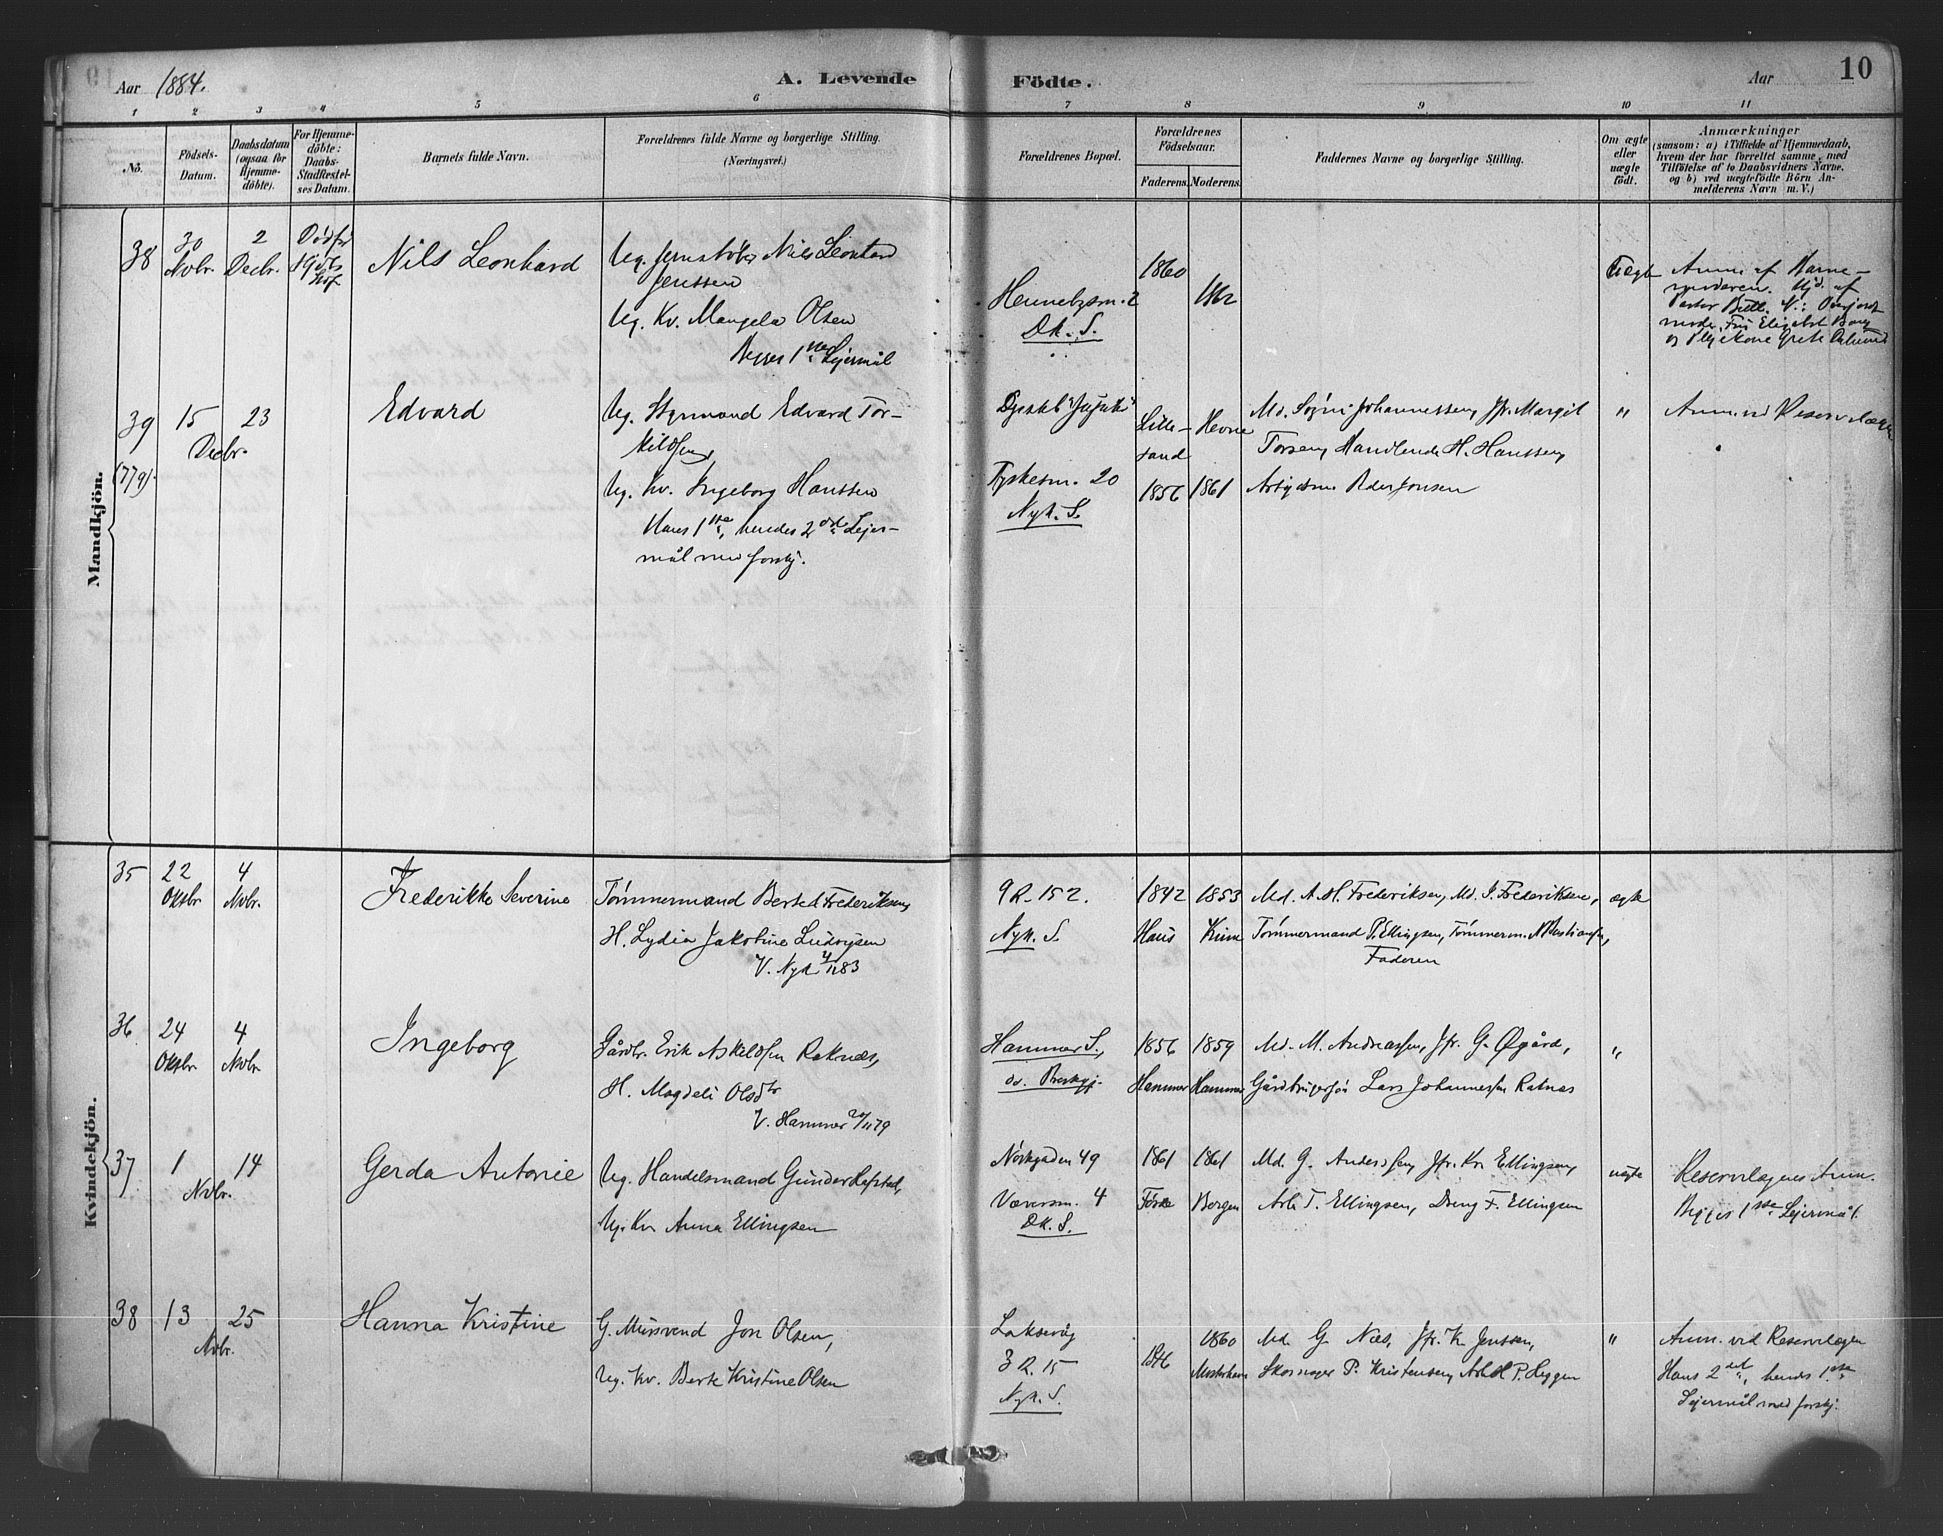 Aar 1884.
A. Levende
Födte.
Aar
10
1 2 3 4 5 6 7 8 9 10 11
No.
Födsels-
Datum.
Daabsdatum
(ogsaa for
Hjemme-
döbte).
For Hjemme-
döbte:
Daabs-
Stadfæstel-
ses Datum.
Barnets fulde Navn.
Forældrenes fulde Navne og borgerlige Stilling.
(Næringsvei.)
Forældrenes Bopæl.
Forældrenes
Födselsaar.
Faderens.
Moderens.
Faddernes Navne og borgerlige Stilling.
Om ægte
eller
uægte
födt.
Anmærkninger
(saasom: a) i Tilfælde af Hjemmedaab,
hvem der har forrettet samme, med
Tilföielse af to Daabsvidners Navne,
og b) ved uægtefödte Börn An-
melderens Navn m. V.)
Mandkjön.
38
30
Novbr.
2
Decbr.
Nils Leonhard
Ug. Nils Leonhard
Jenssen
Ug. Kv. Mangela Olsen
Begges 1ste Lejermål
2
DK. S.
1860
1862
Uægte
Anm. af Barne-
moderen. Hjd. af
Pastor
39
(779).
15
23
Decbr.
Edvard
Ug. Styrmand Edvard Tor-
kildsen,
Ug. Kv. Ingeborg Hanssen
Hans 1ste, hendes 2det Lejer-
mål med forskj.
Tyskesm. 20
Nyk. S.
Lille-
sand
1856
Hevne
1861
Md. Johannessen, Jfr. Margit
Handlende H. Hanssen,
"
Anm. ved Reservelægen
Kvindekjön.
35
22
Oktbr.
4
Novbr.
Frederikke Severine
Tømmermand Frederiksen,
H. Lydia Jakobine Ludvigsen
V. Nyk
9 R. 152.
Nyk. S.
1842
Haus
1853
Kinn
Md. A. H. Frederiksen, Md. J. Frederiksen,
Tømmermand P. Ellingsen, Tømmerm.
Faderen
ægte
36
24
Oktbr.
4
Novbr.
Ingeborg
Gårdbr. Erik Askildsen Raknæs,
H. Magdeli Olsdtr
V. Hammer 20/11 79
Hammer S.,
do. Præstgj.
1856
Hammer
1859
Hammer
Md. M. Andreassen, Jfr. G. Øgård,
Lars Johannessen Raknæs
"
37
1
14
Novbr.
Gerda Antonie
Ug. Handelsmand Gunder
Ug. Kv. Anna Ellingsen
49
4
DK. S.
1861
1861
Bergen
Md. G. Andersen, Jfr. Kr. Ellingsen,
Arb. T. Ellingsen, Dreng F. Ellingsen
uægte
Reservelægens Anm.
Begges 1ste Lejermål.
38
13
25
Novbr.
Hanna Kristine
G. Jon Olsen,
Ug. Kv. Berte Kristine Olsen
Laksevåg
3 R. 15
Nyk. S.
1846
1860
Md. G. Næs, Jfr. K. Jenssen,
Skomager P. Kristensen,
"
Anm. ved Reservelægen
Hans 2det, hendes 1ste
Lejermål med forskj.